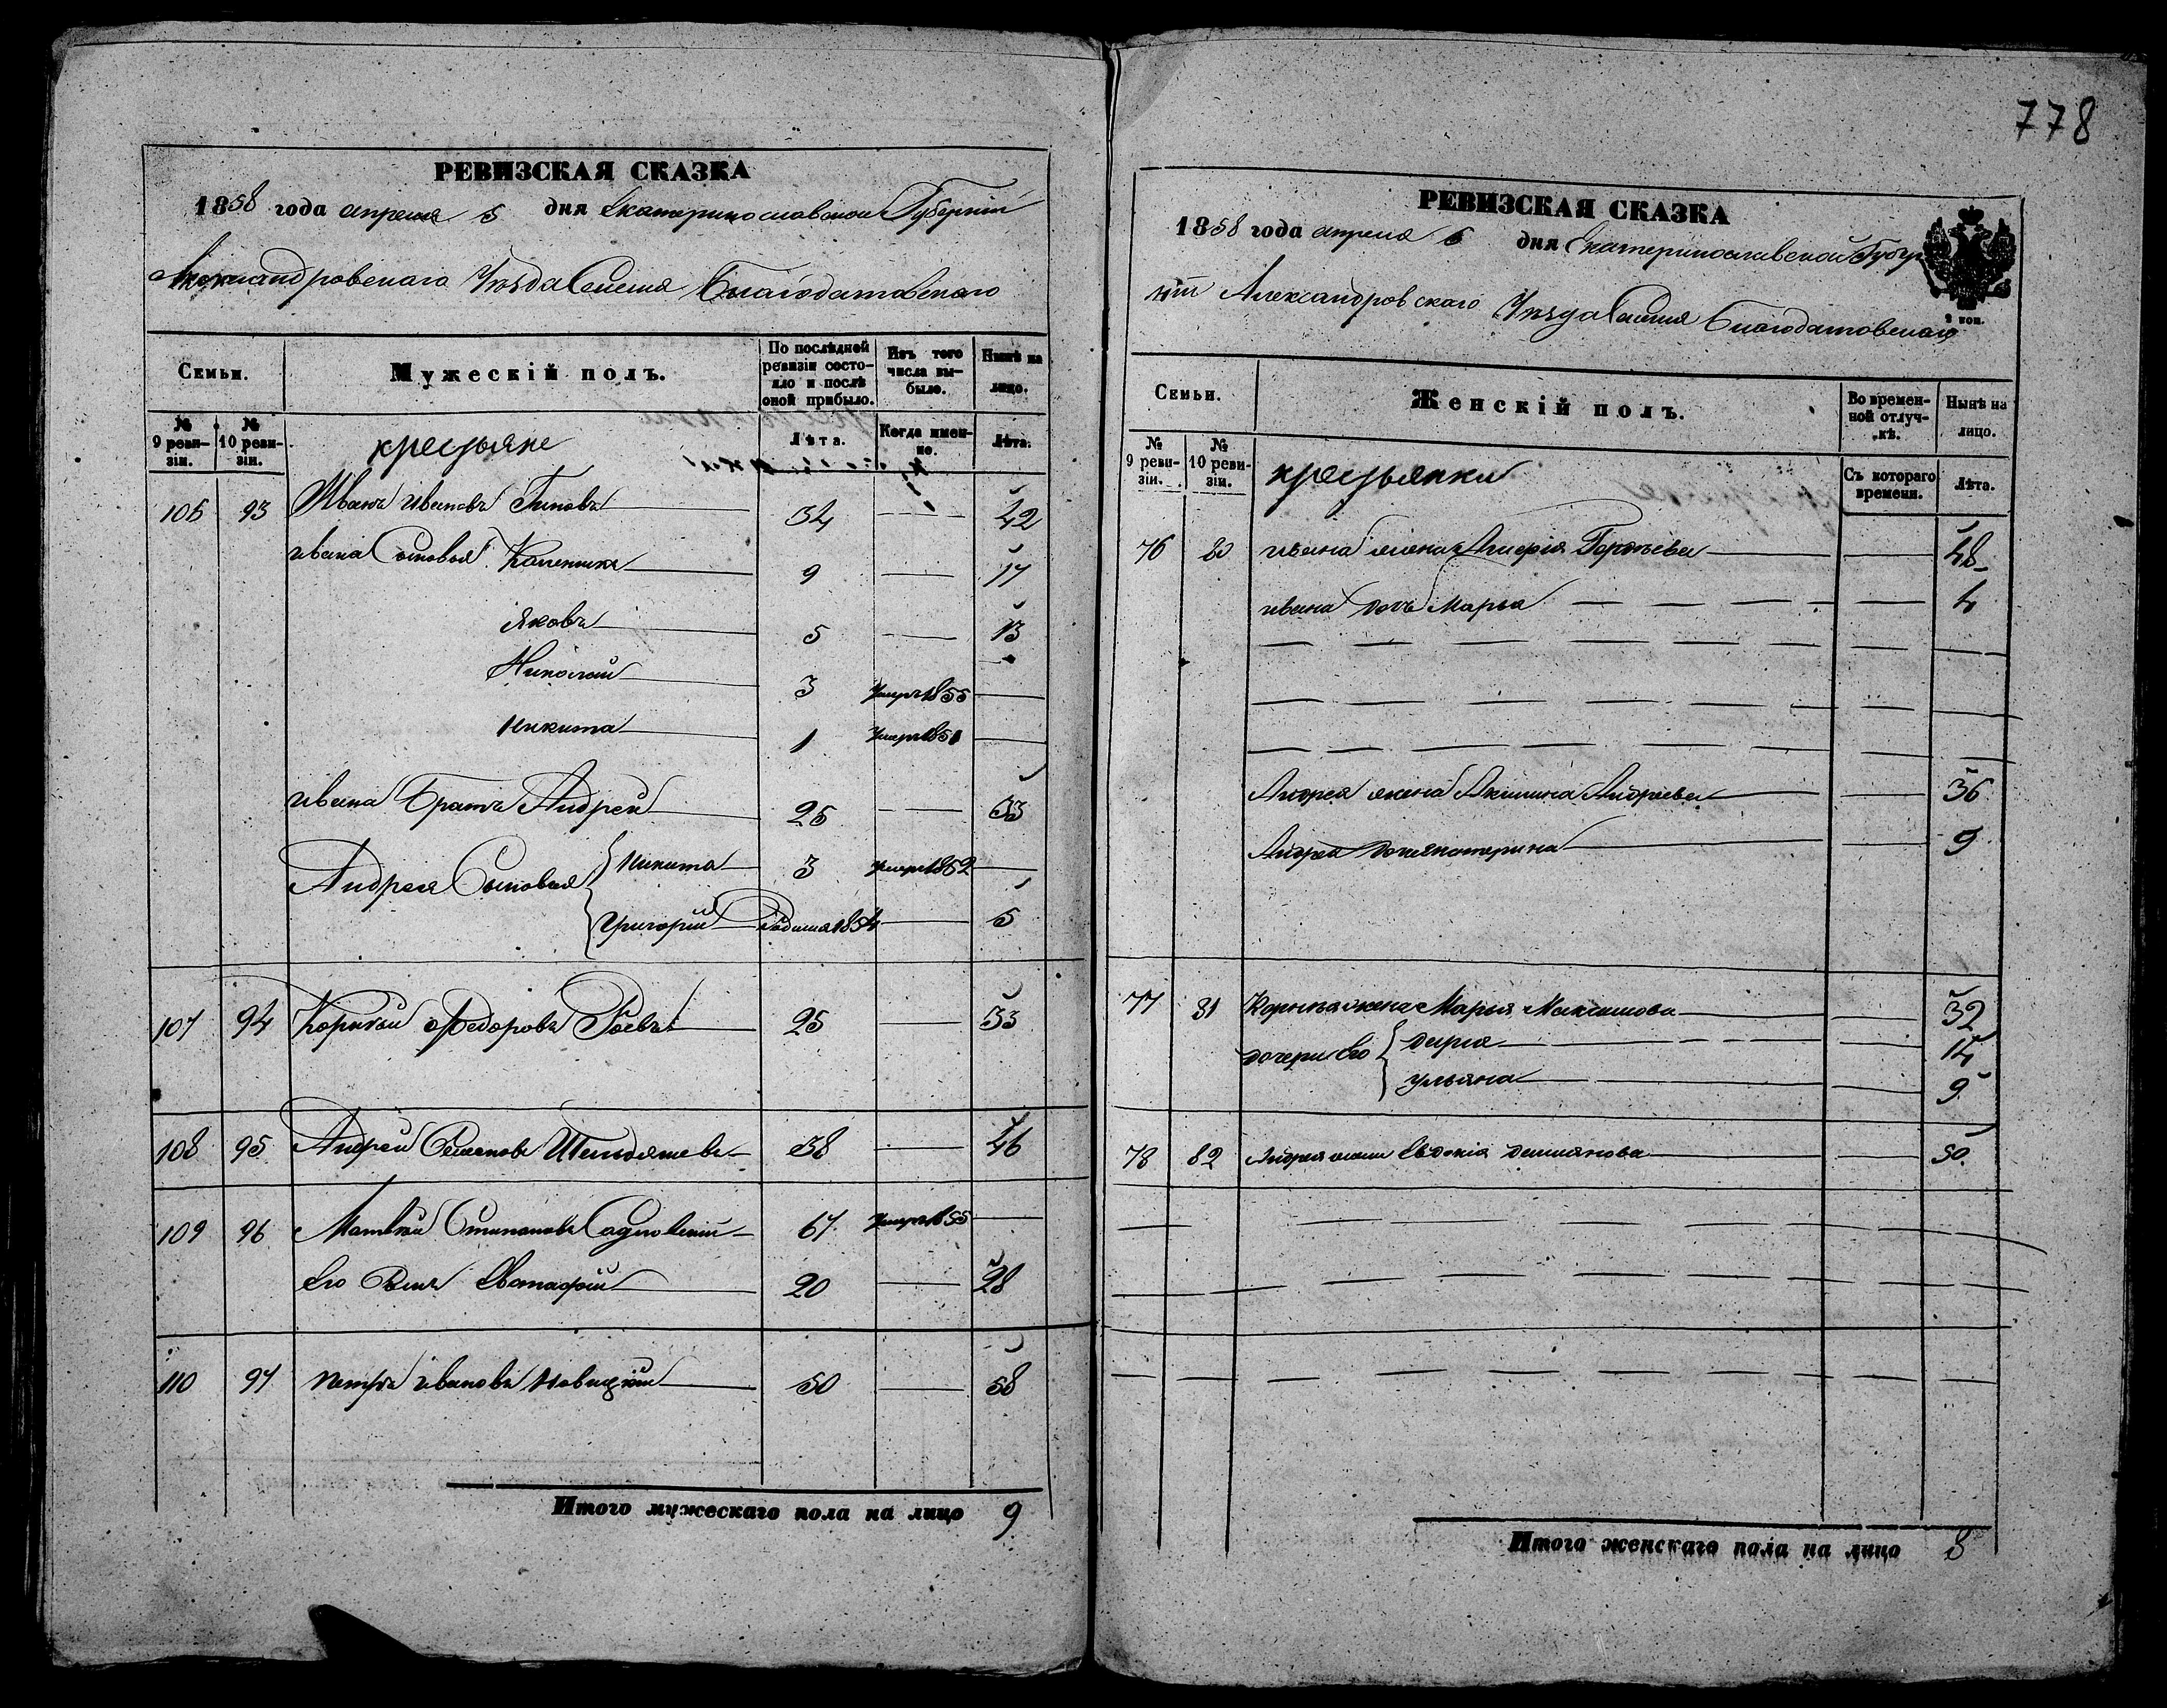 РЕВИЗСКАЯ СКАЗКА
1858 года апреля 5 дня Екатеринославской Губернии
Александровскаго Уезда Селенія Благодатовскаго
Семьи.
Мужескій полъ.
По послѣдней ревизіи состояло и послѣ оной прибыло.
Изъ того числа выбыло.
Нынѣ на лицо.
№ 9 ревизіи.
№ 10 ревизіи.
крестьяне
Лѣта.
Когда именно.
Лѣта.
106 93 Иванъ Ивановъ 34 — 42
Ивана Сыновья 9 — 17
Яковъ 5 — 13
Николай 3 Умеръ 1855 —
Никита 1 Умеръ 1851 —
Ивана Братъ Андрей 25 — 33
Андрея Сыновья Никита 3 Умеръ 1852 —
Григорій Родился 1854 — 5
107 94 Корній Федоровъ 25 — 33
108 95 Андрей Семеновъ 38 — 46
109 96 Матвей Степановъ 67 Умеръ 1855 —
Его Сынъ Евстафій 20 — 28
110 97 Петръ Ивановъ Новицкій 50 — 58
Итого мужескаго пола на лицо 9
778
РЕВИЗСКАЯ СКАЗКА
1858 года апреля 5 дня Екатеринославской Губер
ніи Александровскаго Уезда Селенія Благодатовскаго
2 коп.
Семьи.
Женскій полъ.
Во временной отлучкѣ.
Нынѣ на лицо.
№ 9 ревизіи.
№ 10 ревизіи.
крестьянки
Съ котораго времени.
Лѣта.
76 80 Ивана жена Гордеева — 48
Ивана дочь Марья — 4
Андрея жена Акилина Андреева — 36
Андрея дочь Екатерина — 9
77 81 Корнѣя жена Марья Максимова — 32
дочери Его Дарья — 14
Ульяна — 9
78 82 Андрея жена Евдокія Демьянова — 50
Итого женскаго пола на лицо 8